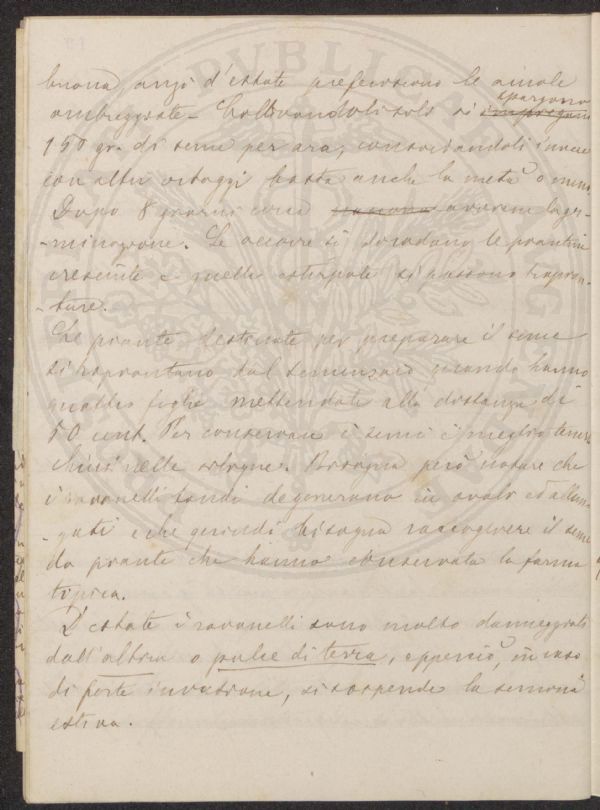 buona, anzi d'estate preferiscono le aiuole
ombreggiate - Coltivandoli soli si spargono
150 gr. di seme per ara, consociandoli invece
con altri ortaggi basta anche la metà o meno
Dopo 8 giorni circa avviene la ger-
-minazione. Se occorre si diradano le piantine
cresciute e quelle estirpate si possono trapian-
-tare.
Le piante destinate per preparare il seme
si trapiantano dal semenzaio quando hanno
quattro foglie mettendole alla distanza di
50 cent. Per conservare i semi è meglio tenerli
chiusi nelle silique. Bisogna però notare che
i ravanelli tondi degenerano in ovali ed allun-
-gati e che quindi bisogna raccogliere il seme
da piante che hanno conservata la forma
tipica.
D'estate i ravanelli sono molto danneggiati
dall'altica o pulce di terra, epperciò, in caso
di forte invasione, si sospende la semina
estiva.